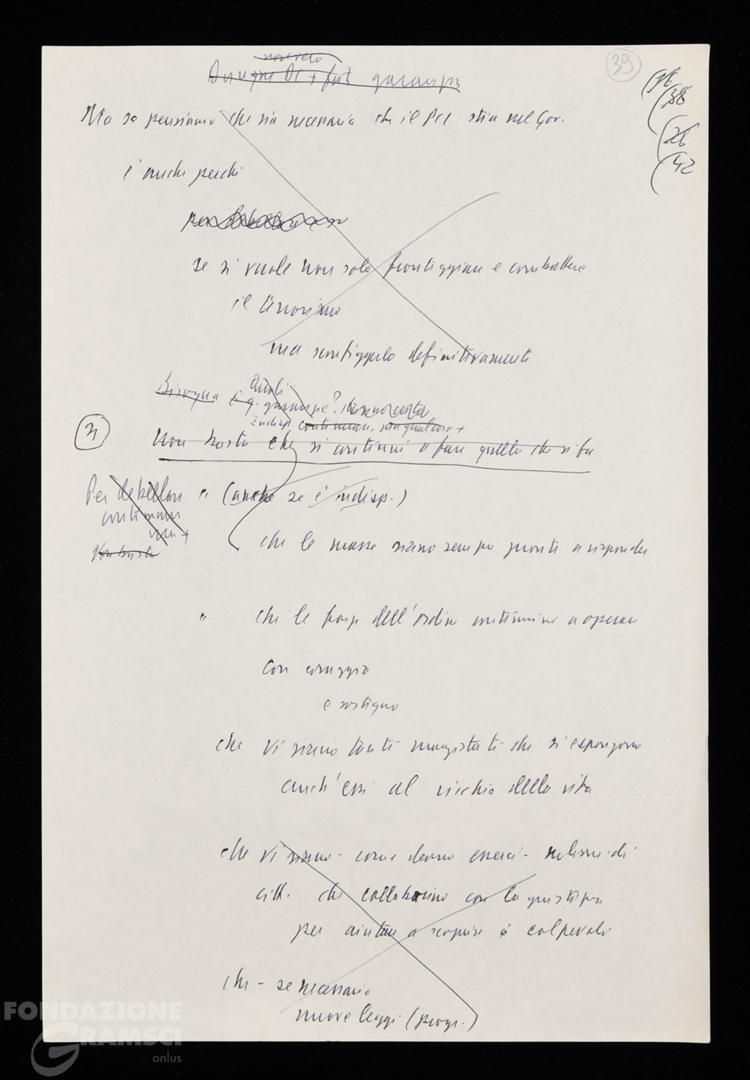 39
38
26
42
Ma se pensiamo che sia necessario che il PCI stia nel Gov.
è anche perché
se si vuole non solo fronteggiare e combattere
il terrorismo
ma sconfiggerlo definitivamente
Bisogna Quali
indisp. continuare, ma qualcosa +
non basta che si continui a fare quello che si fa
Per debellare " (anche se è indisp.)
continuare
Non basta
che le masse siano sempre pronte a rispondere
" che le forze dell'ordine continuino a operare
con coraggio
e sostegno
che vi siano tanti magistrati che si espongono
anch'essi al rischio della vita
che vi siano - come devono esserci - milioni di
citt. che collaborino con la giustizia
per aiutare a scoprire i colpevoli
che - se necessario
nuove leggi (progr.)
FONDAZIONE
GRAMSCI
onlus